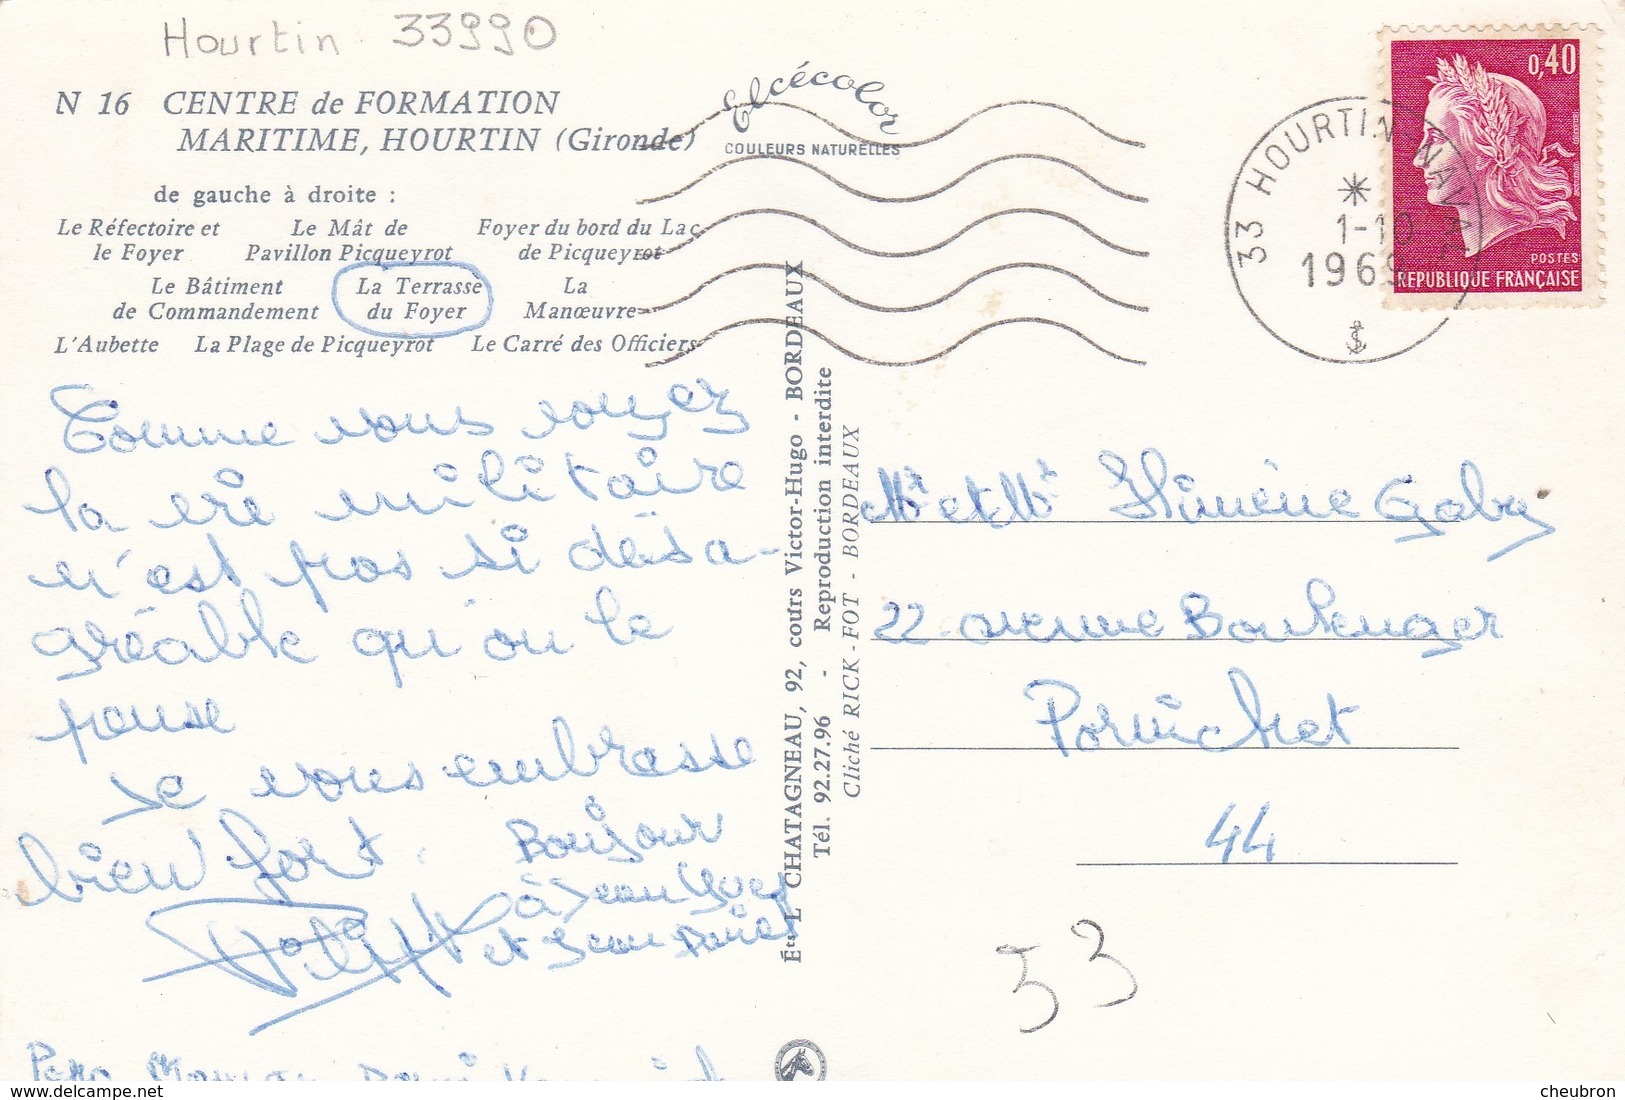 Hourtin 33990
N 16 CENTRE de FORMATION
MARITIME, HOURTIN (Gironde)
Elcécolor
COULEURS NATURELLES
de gauche à droite :
Le Réfectoire et le Foyer
Le Mât de Pavillon Picqueyrot
Foyer du bord du Lac de Picqueyrot
Le Bâtiment de Commandement
La Terrasse du Foyer
La Manœuvre
L'Aubette La Plage de Picqueyrot Le Carré des Officiers
33 HOURTIN NAVAL
1-10
1969
0,40
POSTES
REPUBLIQUE FRANÇAISE
Comme vous voyez
la vie militaire
n'est pas si désa-
gréable qu'on le
pense
Je vous embrasse
bien fort. Bonjour
à Jean Yves
et Jean
Éts L CHATAGNEAU, 92, cours Victor-Hugo - BORDEAUX
Tél. 92.27.96 - Reproduction interdite
Cliché RICK-FOT - BORDEAUX
Mr et Mr Gaby
22 avenue Boulenger
Pornichet
44
33
cheubron